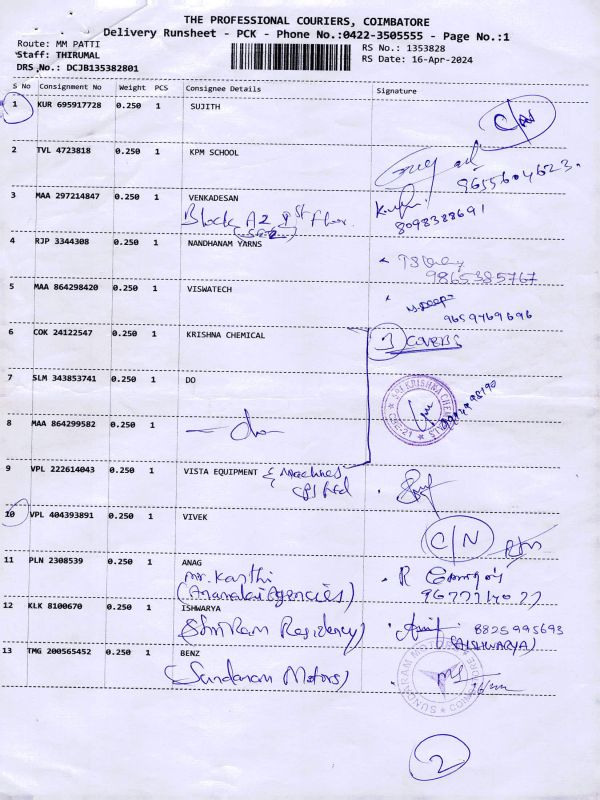 THE PROFESSIONAL COURIERS, COIMBATORE
Delivery Runsheet - PCK - Phone No.:0422-3505555 - Page No.:1
Route: MM PATTI
Staff: THIRUMAL
DRS No.: DCJB135382801
RS No.: 1353828
RS Date: 16-Apr-2024
S No Consignment No Weight PCS Consignee Details Signature
1 KUR 695917728 0.250 1 SUJITH
2 TVL 4723818 0.250 1 KPM SCHOOL
9655604623.
3 MAA 297214847 0.250 1 VENKADESAN
Block A2 1st floor.
8098388691
4 RJP 3344308 0.250 1 NANDHANAM YARNS
9865385767
5 MAA 864298420 0.250 1 VISWATECH
9659769696
6 COK 24122547 0.250 1 KRISHNA CHEMICAL 3 COVERS
7 SLM 343853741 0.250 1 DO
SRI KRISHNA CHEMICALS
CBE-21
8 MAA 864299582 0.250 1 - do -
9 VPL 222614043 0.250 1 VISTA EQUIPMENT & Machines
10 VPL 404393891 0.250 1 VIVEK C/N
11 PLN 2308539 0.250 1 ANAG
Mr. Kanthi
(Anamalai Agencies)
12 KLK 8100670 0.250 1 ISHWARYA
8825995693
(Shriram Residency) (AISHWARYA)
13 TMG 200565452 0.250 1 BENZ
(Sundaram Motors)
SUNDARAM MOTORS
2